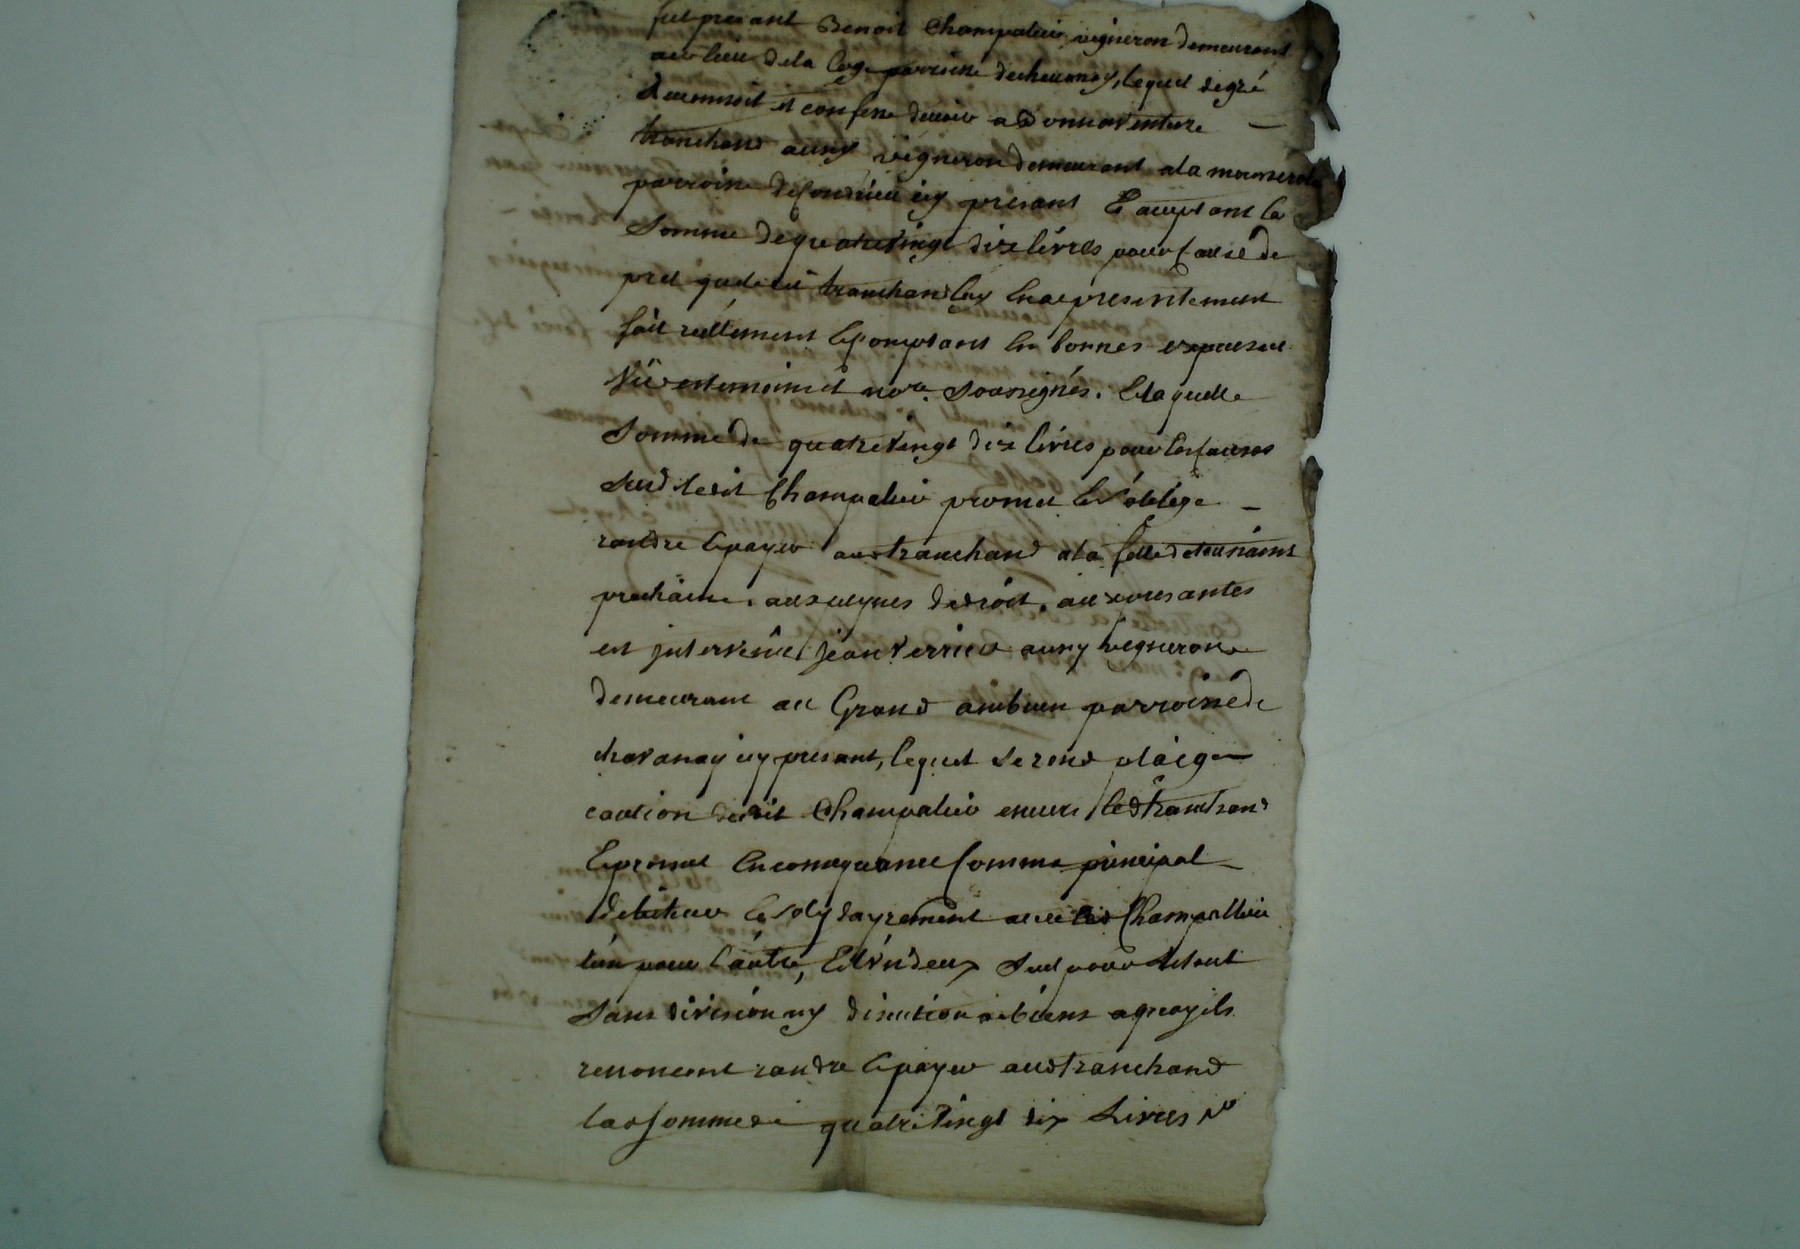 fut presant Benoit Champalieu vigneron demeurant
au lieu de la Coge parroisse de chavanay, lequel de gré
a reconnoit et confesse devoir a Bonnaventure —
tranchand aussy vigneron demeurant a la
parroisse de Condrieu icy présant Et aceptant la
Somme de quatre vingt dix livres pour Cause de
prêt que ledit tranchand luy En a présentement
fait réellement Et Comptant En bonnes especes au
Vû es temoins et nore. Soussignés. Et laquelle
Somme de quatre vingt dix livres pour Les causes
Susd ledit Champalieu promet Et S'oblige —
randre Et payer aud tranchand a la fette de tousiaint
prochaine. aux peynes de droit. aux presantes
est intervenû Jean Verrieu aussy vigneron
demeurant au Grand ambuen parroisse de
chavanay icy presant, lequel Se rend plaige
caution dudit Champalieu envers led tranchand
Et promet En consequance Comme principal —
débiteur Et Solydayrement avec led Champallieu
l'un pour l'autre, Et l'vn deux Seul pour le tout
Sans division ny discution de biens a quoy ils
renoncent randre Et payer aud tranchand
lad Somme de quatre vingt dix Livres